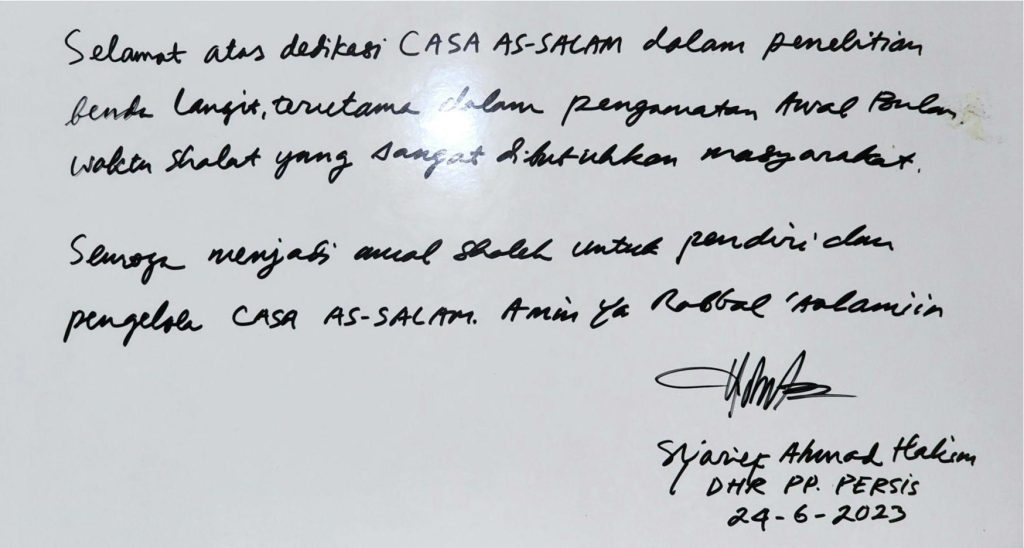 Selamat atas dedikasi CASA AS-SALAM dalam penelitian
benda langit, terutama dalam pengamatan Awal Bulan,
waktu shalat yang sangat dibutuhkan masyarakat.
Semoga menjadi amal sholeh untuk pendiri dan
pengelola CASA AS-SALAM. Amin Ya Rabbal 'aalamiin
Syarief Ahmad Hakim
DHR PP. PERSIS
24-6-2023